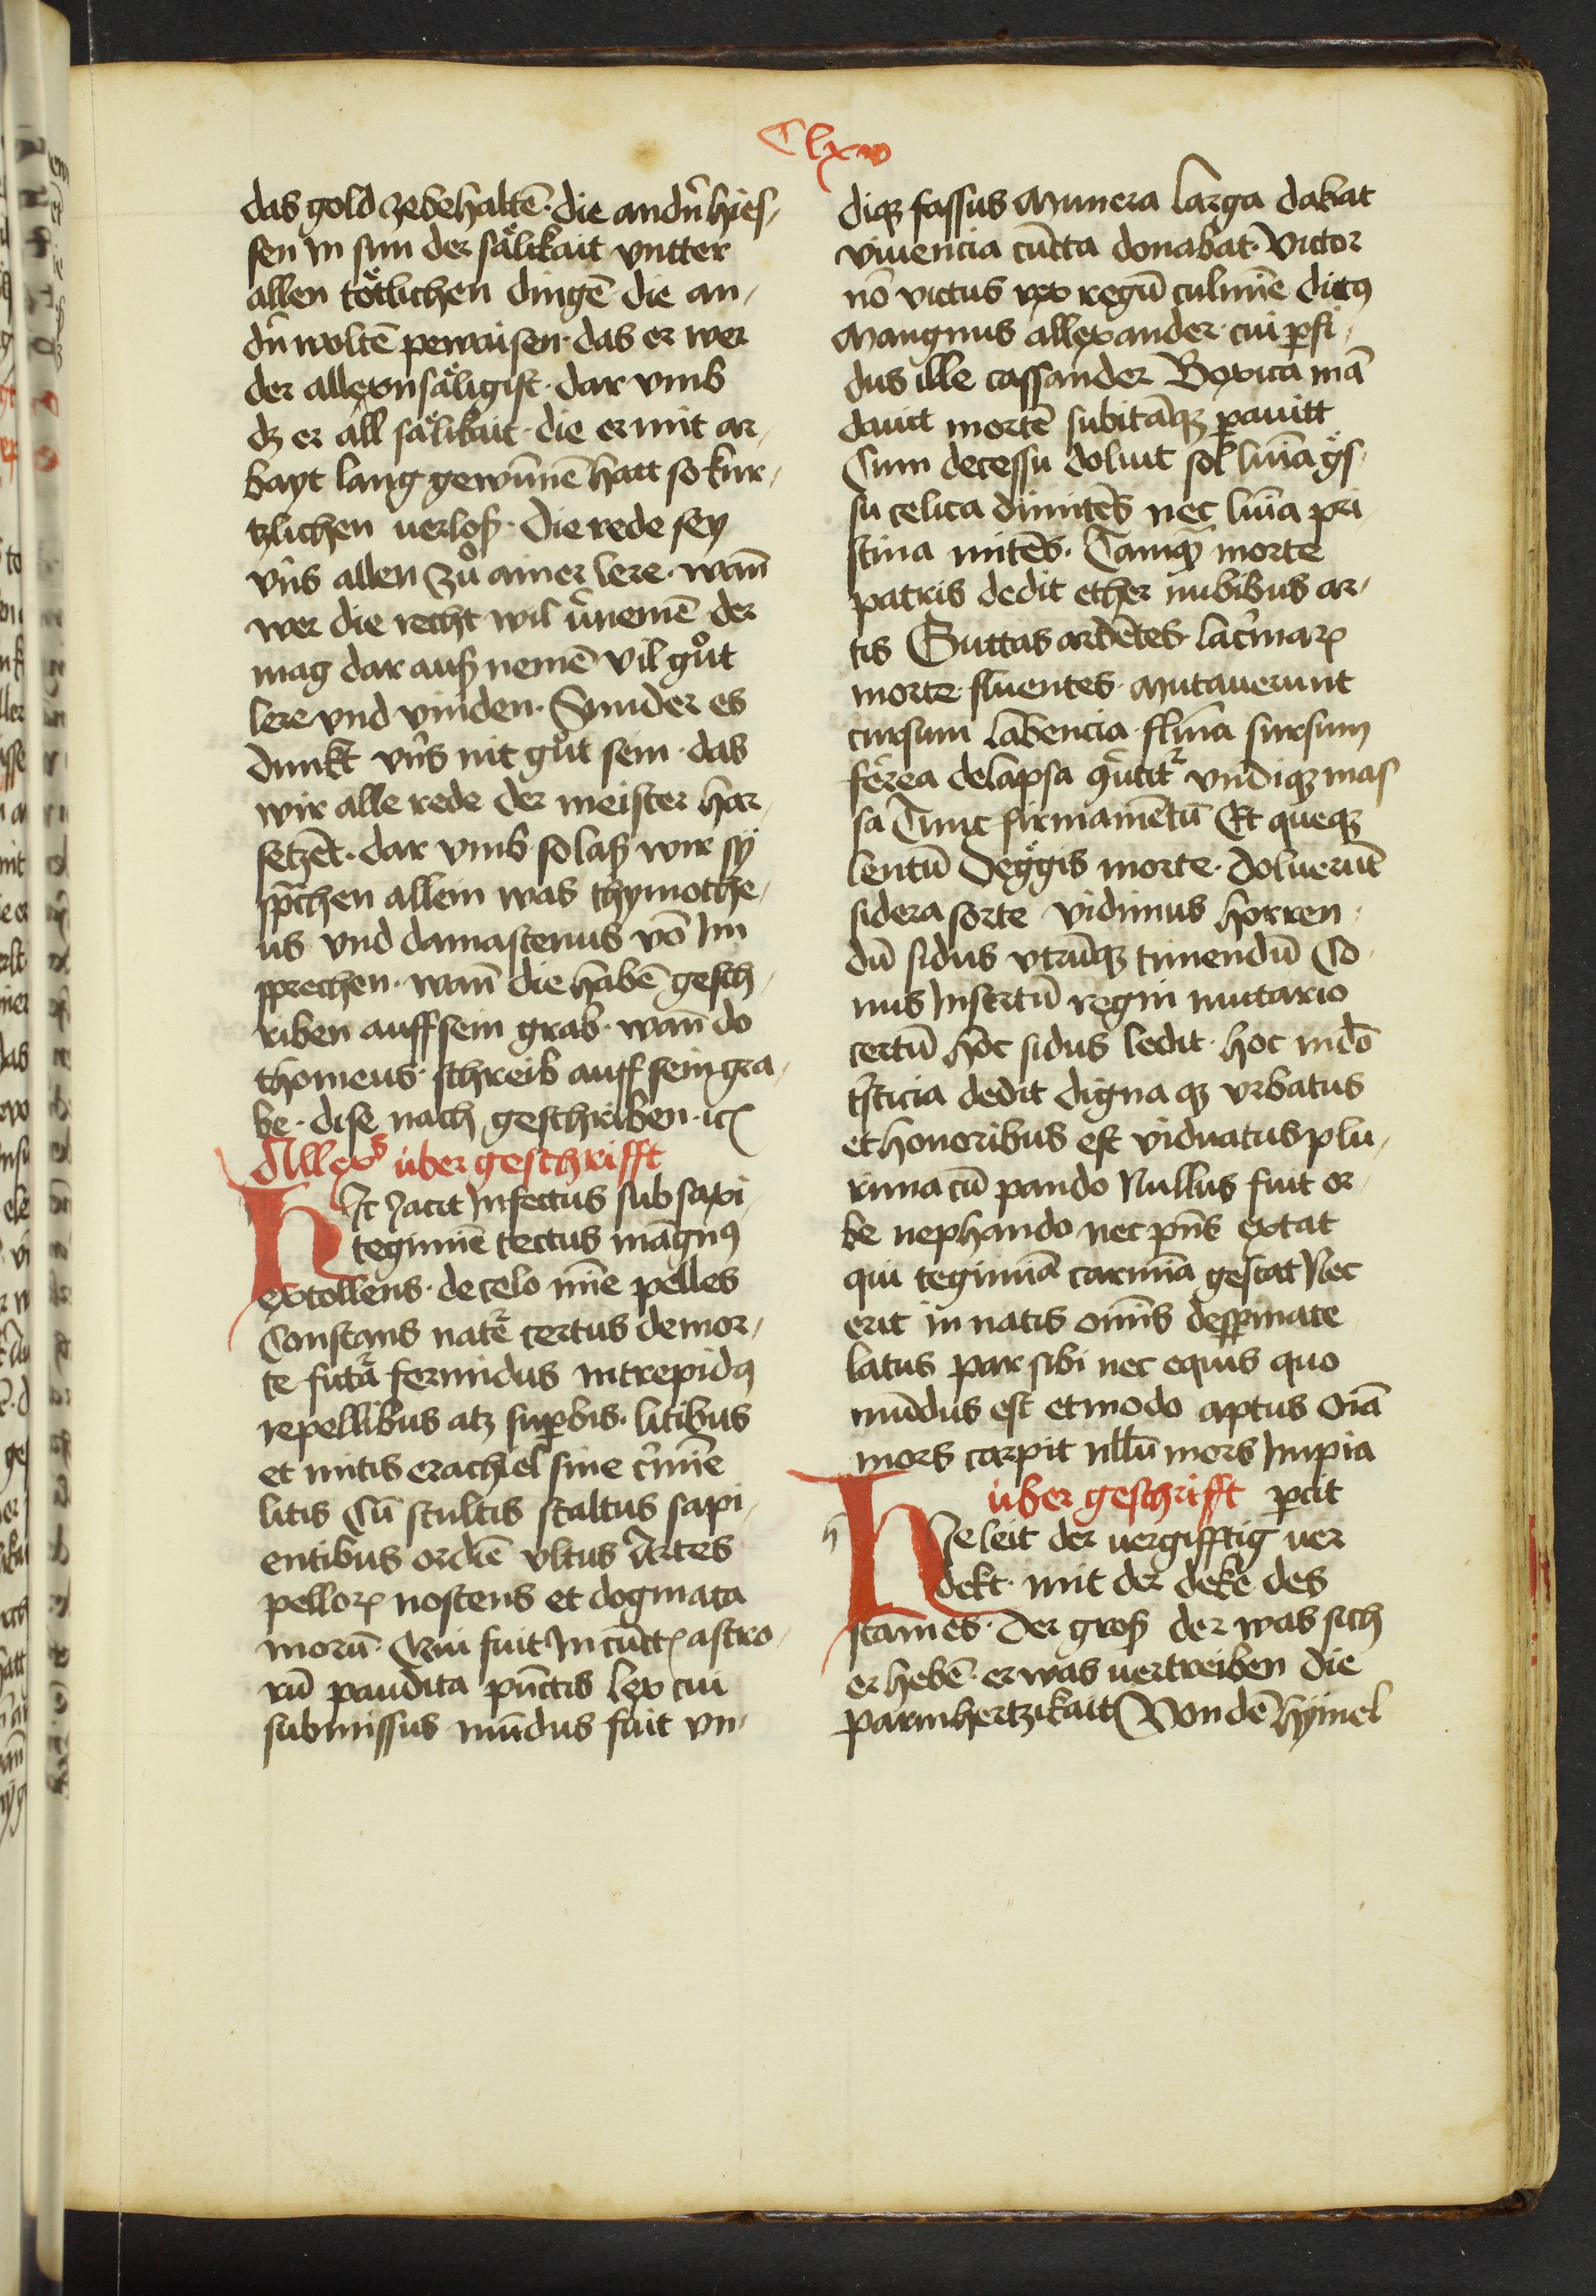 Clxv
das gold zebehaltē · die andn̄ hies,
sen in sun der sälikait vntter
allen tötlichen dingē die an,
dn̄ woltē pewaisen · das er wer
der allexnsäligist · dar vmb
dz er all sälikait · die er mit ar,
bayt lang gewūnnē hatt so kur,
tzlichen uerloß · Die rede sey
vn̄s allen zů ainer lere · wann̄
wer die recht wil v̄nemē der
mag dar auß nemē vil gůt
lere vnd vinden · Sunder es
dunkt vn̄s nit gůt sein · das
wir alle rede der meister har,
setzēt · dar vmb so laß wir sy
sp̄chen allein was thymothe,
us vnd damastenus vō Im
sprechen · wann̄ die habē gesch,
riben auff sein grab · wann̄ do
thomeus · schreib auff sein gra,
be · dise nach geschriben · ꝛc
Allexs über geschrifft
Hic Iacit Infectus sub saxi
tegimīe tectus māgnꝰ
extollens · de celo mīe pelles
Constans natē certus de mor,
te futa fermidus intrepidꝰ
repellibus atz suꝑbis · litibus
et mitis erachiel sine c̄mīe
litis Cū stultis staltus sapi,
entibus ordīe vltus Artes
pelloꝝ nostens et dogmata
morū · Cui fuit In cūctꝭ astro,
rū pandita pūctis lex cui
submissus mūndus fuit vn,
diqꝫ fassus Munera larga dabat
viuencia cūcta donabat · Victor
nō victus rex regū culmīe dictꝰ
Mangnus allexander · cui ꝑfi,
dus ille cassander Boxica mā
dauit mortē subitāqꝫ ꝑauitt
Cum decessu doluit sol luīa gs,
su celica dimitēs nec luīa pri,
stina mitēs · Tamqꝫ morte
patris dedit ether nubibus ar,
tis Guttas ardētes lac̄maꝝ
morte · fluentes · Mutauerunt
cursum labencia · flīna sursum
fērea delapsa q̄utit vndiqꝫ mas
sa Tunc firmamētū Et queqꝫ
lentū Deggis morte · doluerūt
sidera sorte vidimus horren,
dū sidus vtrūqꝫ timendū Co,
nus Insertū regin mutario
certū hoc sidus ledit · hoc mdō
tristicia dedit digna qꝫ vrbatus
et honoribus est viduatus plu,
rima cū pando Nullus fuit or,
be nephando nec pn̄s extat
qui tegimīa carmīa gestat Nec
erit in natis omīs despinate
latus par sibi nec equis quo
mūdus est et modo aptus Oīa
mors carpit nllū mors Impia
über geschrifft ꝑcit
Hie leit der uergifftig uer
dekt · mit der dekē des
stames · der groß der was sich
er hebē · er was uertreiben die
parmhertzikait Von dē hymel